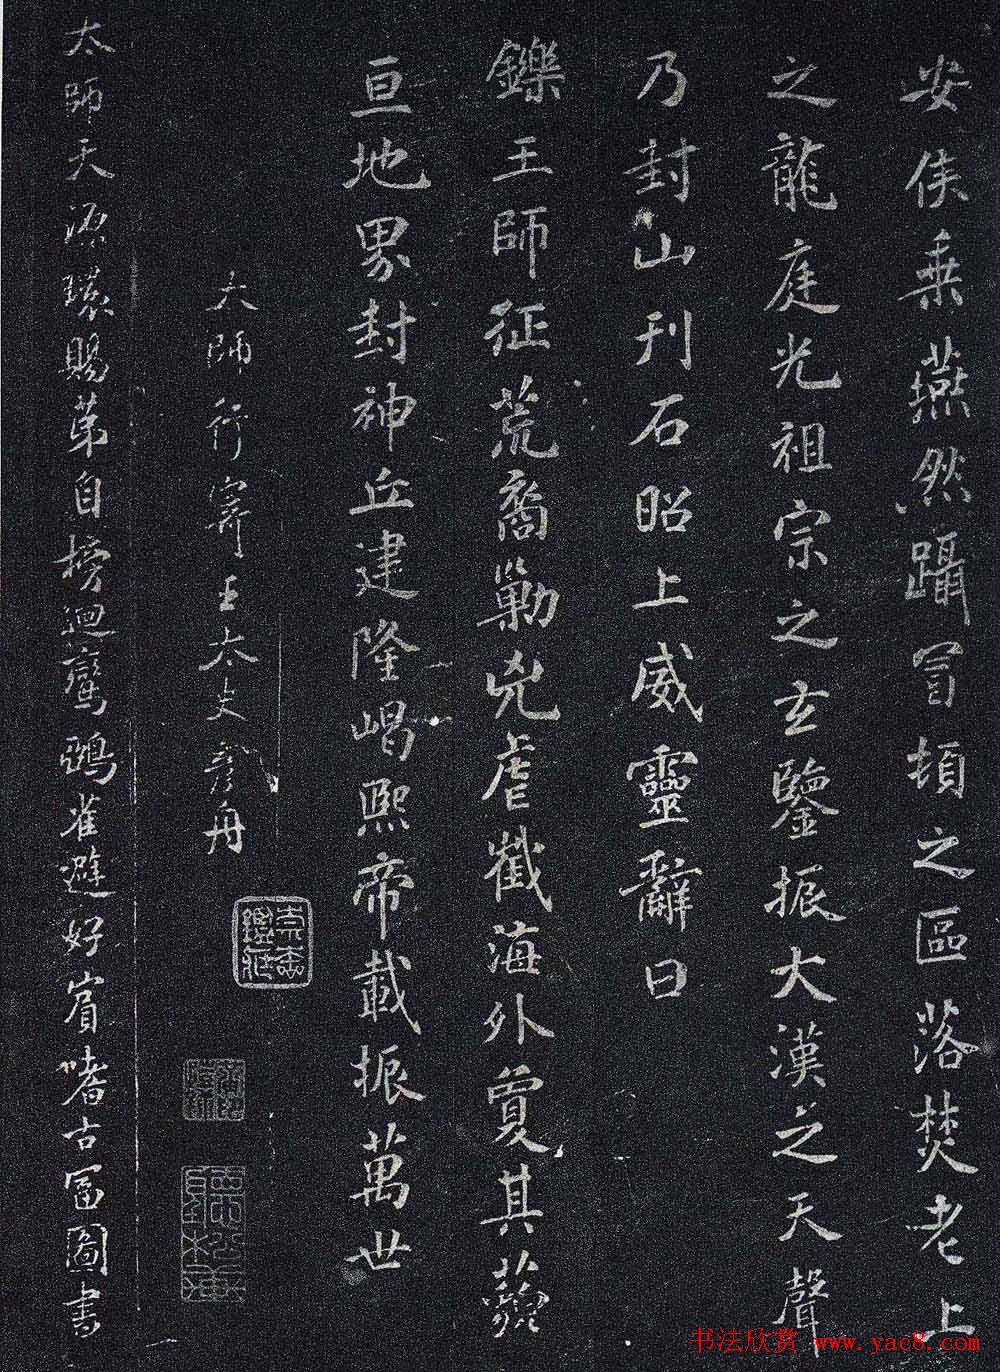 安侯乘燕然躡冒頓之區落焚老上
之龍庭光祖宗之玄鑒振大漢之天聲
乃封山刊石昭上威靈辭曰
鑠王師征荒裔勦兇虐截海外夐其藐
亘地界封神丘建隆嵑熙帝載振萬世
太師行寄王太史彥舟
太師天源環賜第自榜迴鸞鵶雀避好賓嗜古富圖書
书法欣赏 www.yac8.com